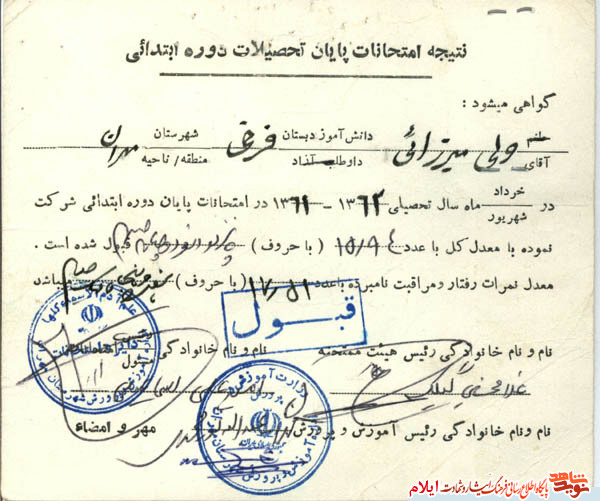 نتیجه امتحانات پایان تحصیلات دوره ابتدائی
گواهی میشود :
خانم
آقای ولی میرزائی دانش آموز دبستان فرخی شهرستان مهران
داوطلب آزاد منطقه/ ناحیه
در خرداد ماه سال تحصیلی ۱۳۶۲ - ۱۳۶۱ در امتحانات پایان دوره ابتدائی شرکت
شهریور
نموده با معدل کل با عدد ( با حروف ) پانزده و نود و چهار صدم قبول شده است .
معدل نمرات رفتار و مراقبت نامبرده با عدد ( با حروف ) میباشد
قبول
نام و نام خانوادگی رئیس هیئت ممتحنه نام و نام خانوادگی مسئول
نام و نام خانوادگی رئیس آموزش و پرورش مهر و امضاء
وزارت آموزش و پرورش
شاهد
نوید
پایگاه اطلاع رسانی فرهنگ ایثار و شهادت ایلام